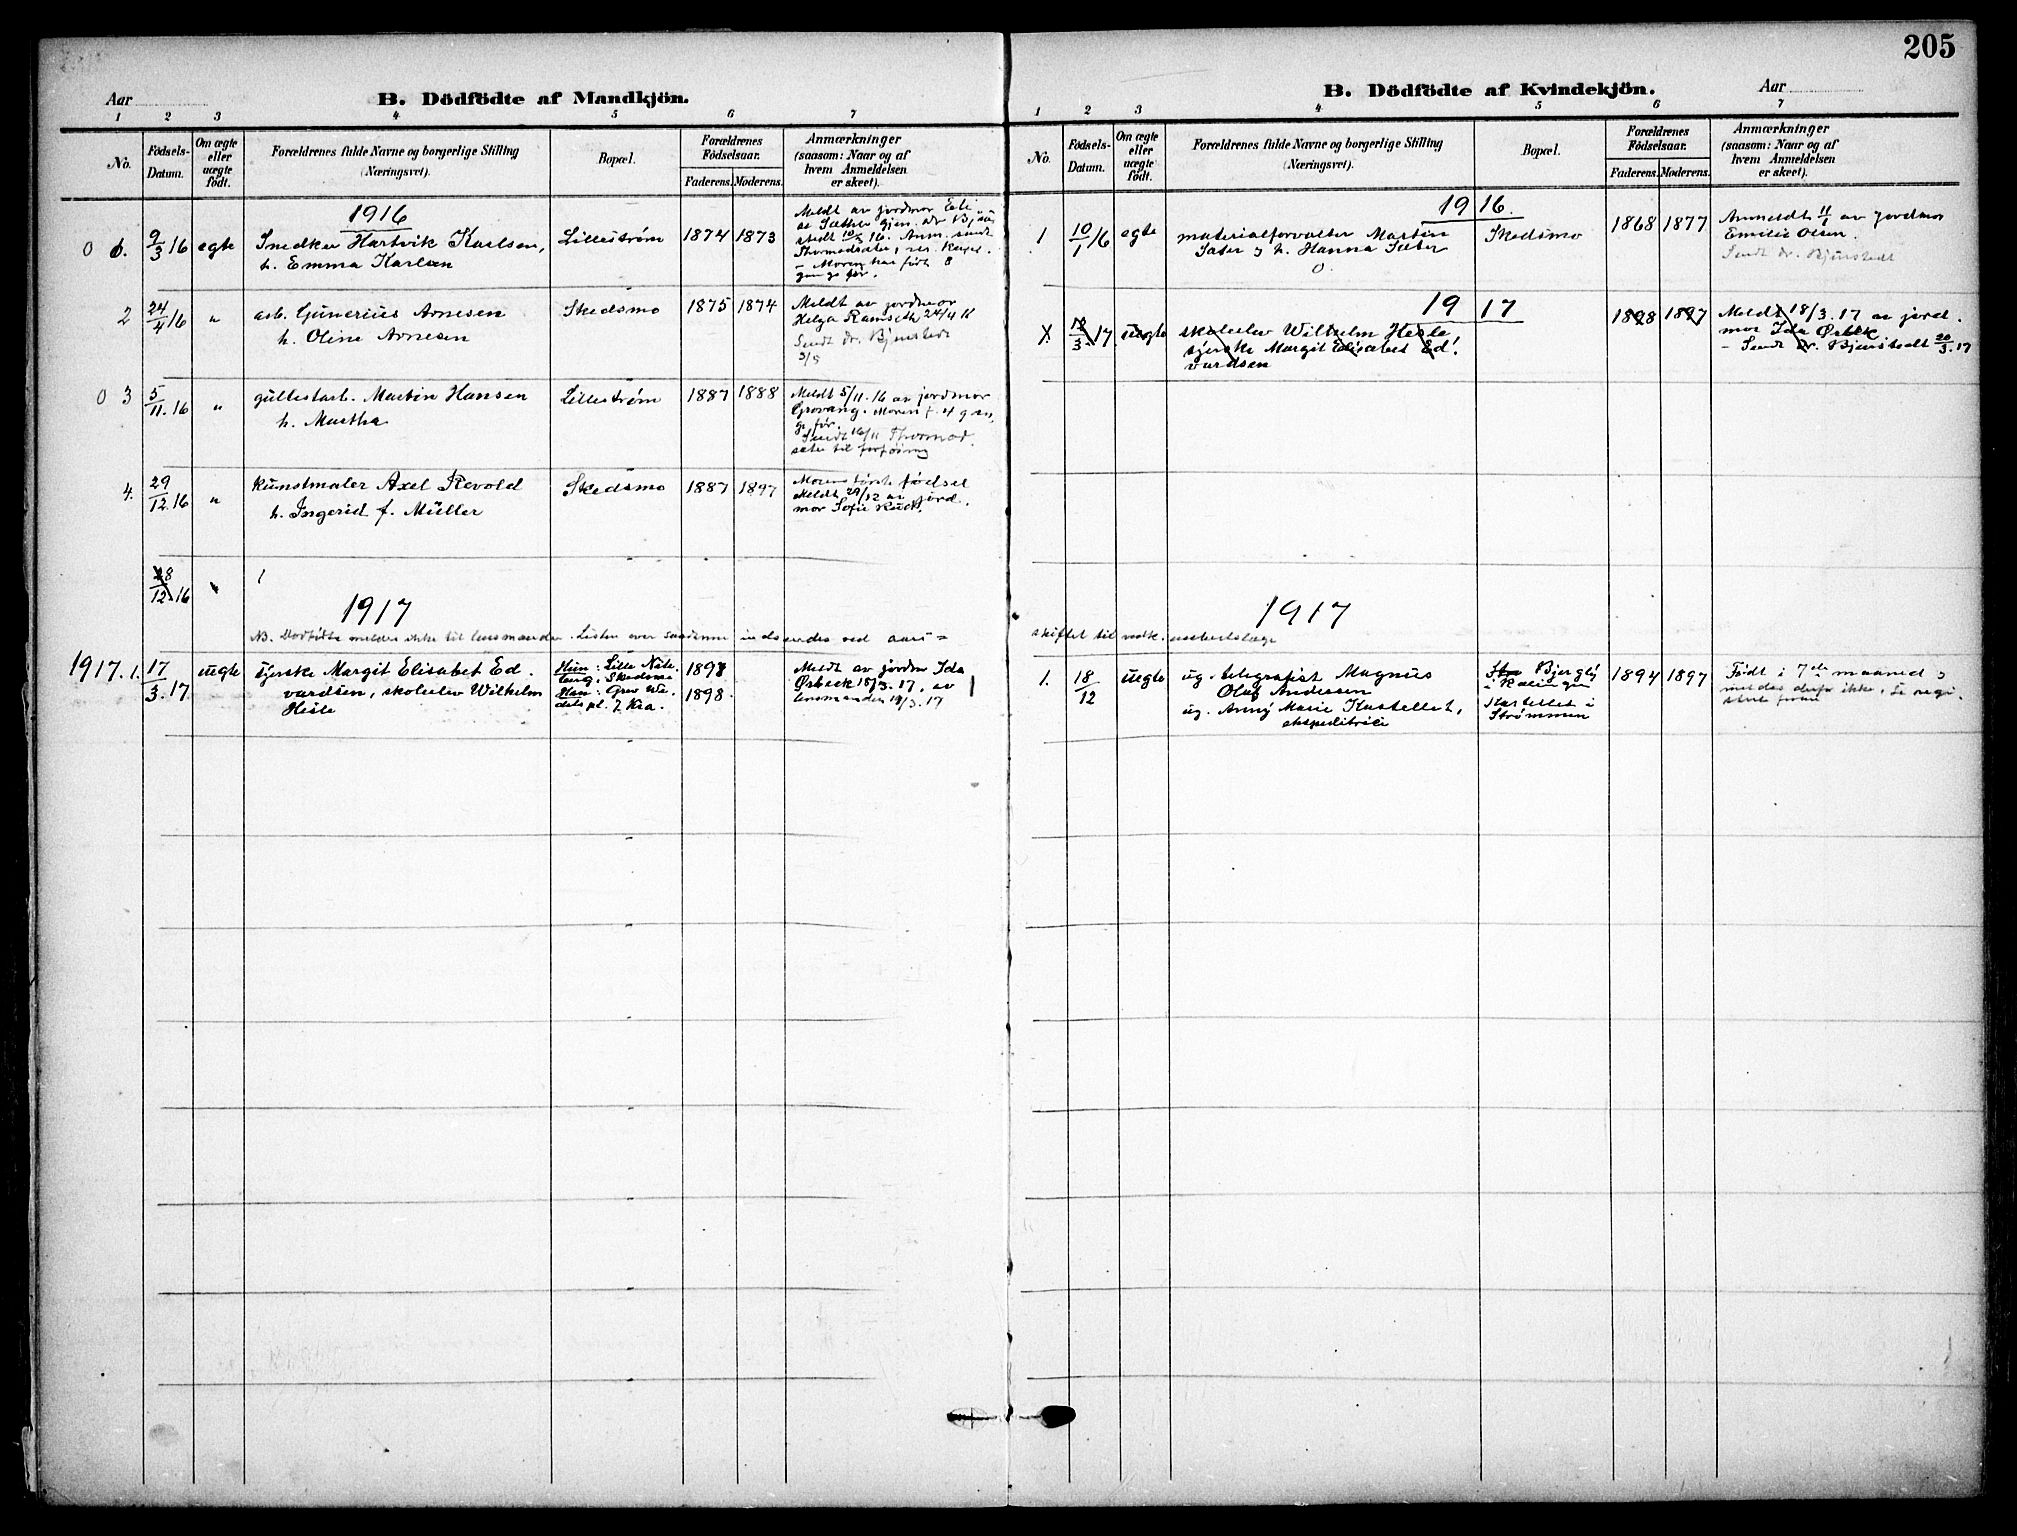 205
Aar
B. Dödfödte af Mandkjön.
1 2 3 4 5 6 7
No.
Födsels-
Datum.
Om ægte
eller
uægte
födt.
Forældrenes fulde Navne og borgerlige Stilling
(Næringsvei).
Bopæl.
Forældrenes
Födselsaar.
Faderens. Moderens.
Anmærkninger
(saasom: Naar og af
hvem Anmeldelsen
er skeet).
1916
0 1. 9/3 16 egte Snedker Hartvik Karlsen,
h. Emma Karlsen
Lillestrøm
1874 1873
Meldt av jordmor
Sæther
10/3 16. Anm. sendt
- Moren har født 8
gange før.
2 24/4 16 " arb. Gunerius Arnesen
h. Oline Arnesen
Skedsmo
1875 1874
Meldt av jordmor
Helga Ramseth 24/4 16
Sendt dr. Bjerstedt
3/5
0 3 5/11. 16 " Martin Hansen
h. Martha
Lillestrøm
1887 1888
Meldt 5/11. 16 av jordmor
Grovang. Moren f. 4 gan,
ge før.
Sendt 16/11
4. 29/12. 16 " Kunstmaler Axel Revold
h. Ingerid f. Müller
Skedsmo
1887 1897
Morens første fødsel
Meldt 29/12 av jord.
mor Sofie Rud.
28/12. 16 "
1917
NB. Dødfødte meldes ikke til lensmanden. Listen over saadanne indsendes ved aars =
1917. 1. 17/3. 17 uegte syerske Margit Elisabet Ed.
vardsen, skoleelev Wilhelm
Hesle
Hun: Lille
berg, Skedsmo
Han: Grev We.
dels pl. 7 Kra.
1897
1898.
Meldt av jordmor Ida
Ørbeck 18/3. 17, av
lensmanden 19/3. 17
B. Dödfödte af Kvindekjön.
Aar
1 2 3 4 5 6 7
No.
Födsels-
Datum.
Om ægte
eller
uægte
födt.
Forældrenes fulde Navne og borgerlige Stilling
(Næringsvei).
Bopæl.
Forældrenes
Födselsaar.
Faderens. Moderens.
Anmærkninger
(saasom: Naar og af
hvem Anmeldelsen
er skeet).
1916.
1 10/1 16 egte materialforvalter Martin
Sæter h. Hanna Sæter
Skedsmo
1868 1877
Anmeldt 11/1 av jordmor
Emilie Olsen.
Sendt dr. Bjerstedt
1917
1. 18/3. 17 uegte skoleelev Wilhelm Hesle
syerske Margit Elisabet Ed.
vardsen
1898 1897
Meldt 18/3. 17 av jord.
mor Ida Ørbek
- Sendt dr. Bjerstedt 20/3. 17
1917
skiftet til vedk.
1. 18/12 uegte ug. telegrafist Magnus
Olaf Andersen
ug. Anny Marie Kastellet,
ekspeditrice
Kastellet i
Strømmen
1894 1897
Født i 7de maaned
meldes derfor ikke.